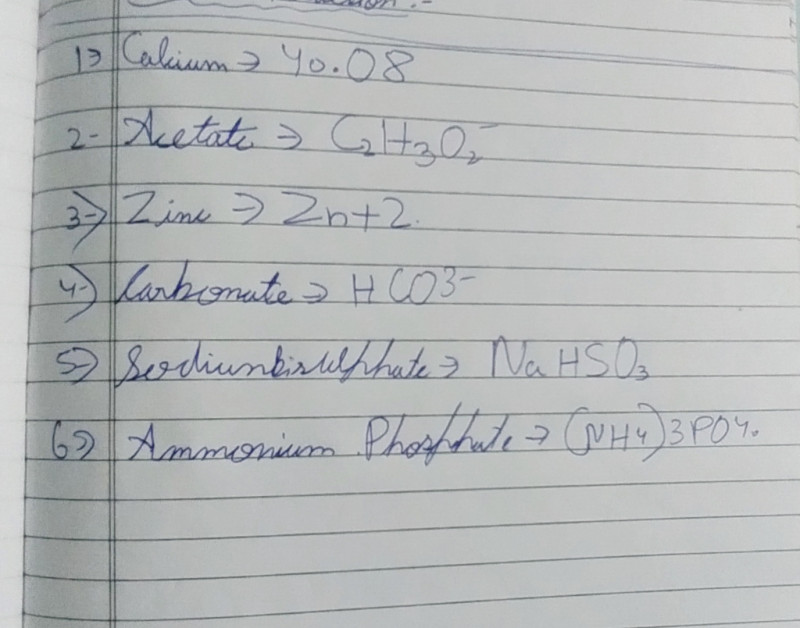 1) Calcium → 40.08
2- Acetate → C2H3O2-
3-) Zinc → Zn+2.
4-) Carbonate → HCO3-
5-) Sodiumbisulphate → NaHSO3
6-) Ammonium Phosphate → (NH4)3PO4.